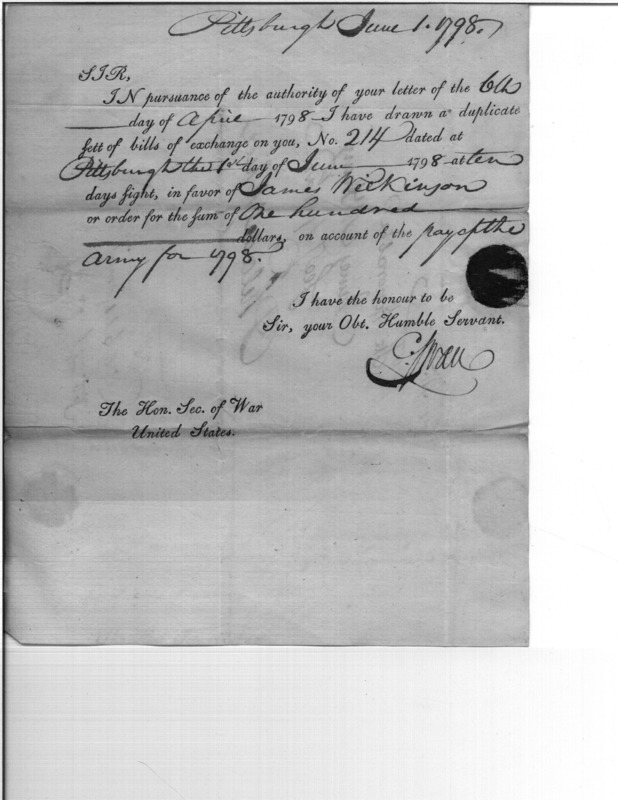 Pittsburgh June 1. 1798.
SIR,
IN pursuance of the authority of your letter of the 6th
day of April 1798 I have drawn a duplicate
sett of bills of exchange on you, No. 214 dated at
Pittsburgh the 1st day of June 1798 at ten
days sight, in favor of James Wilkinson
or order for the sum of One hundred
dollars, on account of the pay of the
Army for 1798.
I have the honour to be
Sir, your Obt. Humble Servant.
C. Swan
The Hon. Sec. of War
United States.